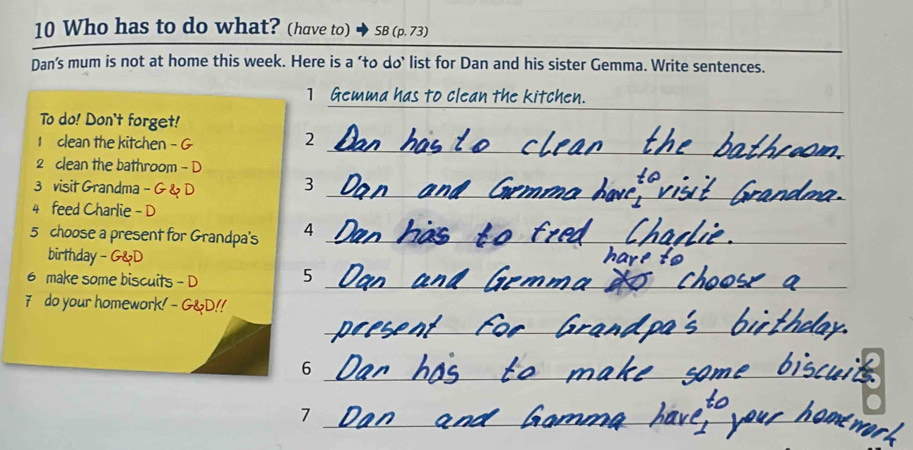 10 Who has to do what? (have to) → SB (p. 73)
Dan's mum is not at home this week. Here is a 'to do' list for Dan and his sister Gemma. Write sentences.
To do! Don't forget!
1 clean the kitchen - G
2 clean the bathroom - D
3 visit Grandma - G & D
4 feed Charlie - D
5 choose a present for Grandpa's
birthday - G&D
6 make some biscuits - D
7 do your homework! - G&D!!
1 Gemma has to clean the kitchen.
2 Dan has to clean the bathroom.
3 Dan and Gemma have to visit Grandma.
4 Dan has to feed Charlie.
5 Dan and Gemma have to choose a
present for Grandpa's birthday.
6 Dan has to make some biscuits.
7 Dan and Gamma have to your homework